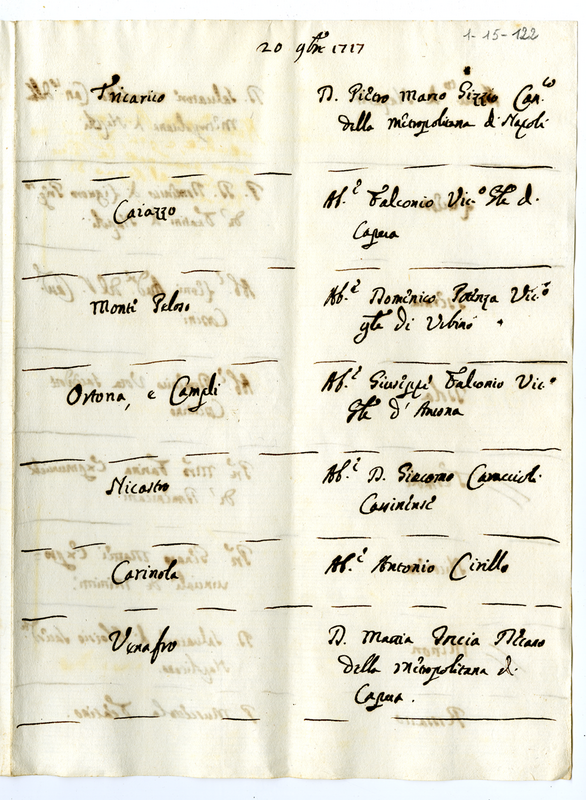 1-15-122
20 9bre 1717
Tricarico
D. Pietro Marco Gizzio Can.co
della metropolitana di Napoli
Caiazzo
Ab.e Falconio Vic.o Gle di
Capua
Monte Peloso
Ab.e Domenico Potenza Vic.o
gle di Urbino
Ortona, e Campli
Ab.e Giuseppe Falconio Vic.o
Gle d'Ancona
Nicastro
Ab.e D. Giacomo Caracciolo
Cassinense
Carinola
Ab.e Antonio Cirillo
Venafro
D. Mattia
della metropolitana di
Capua.